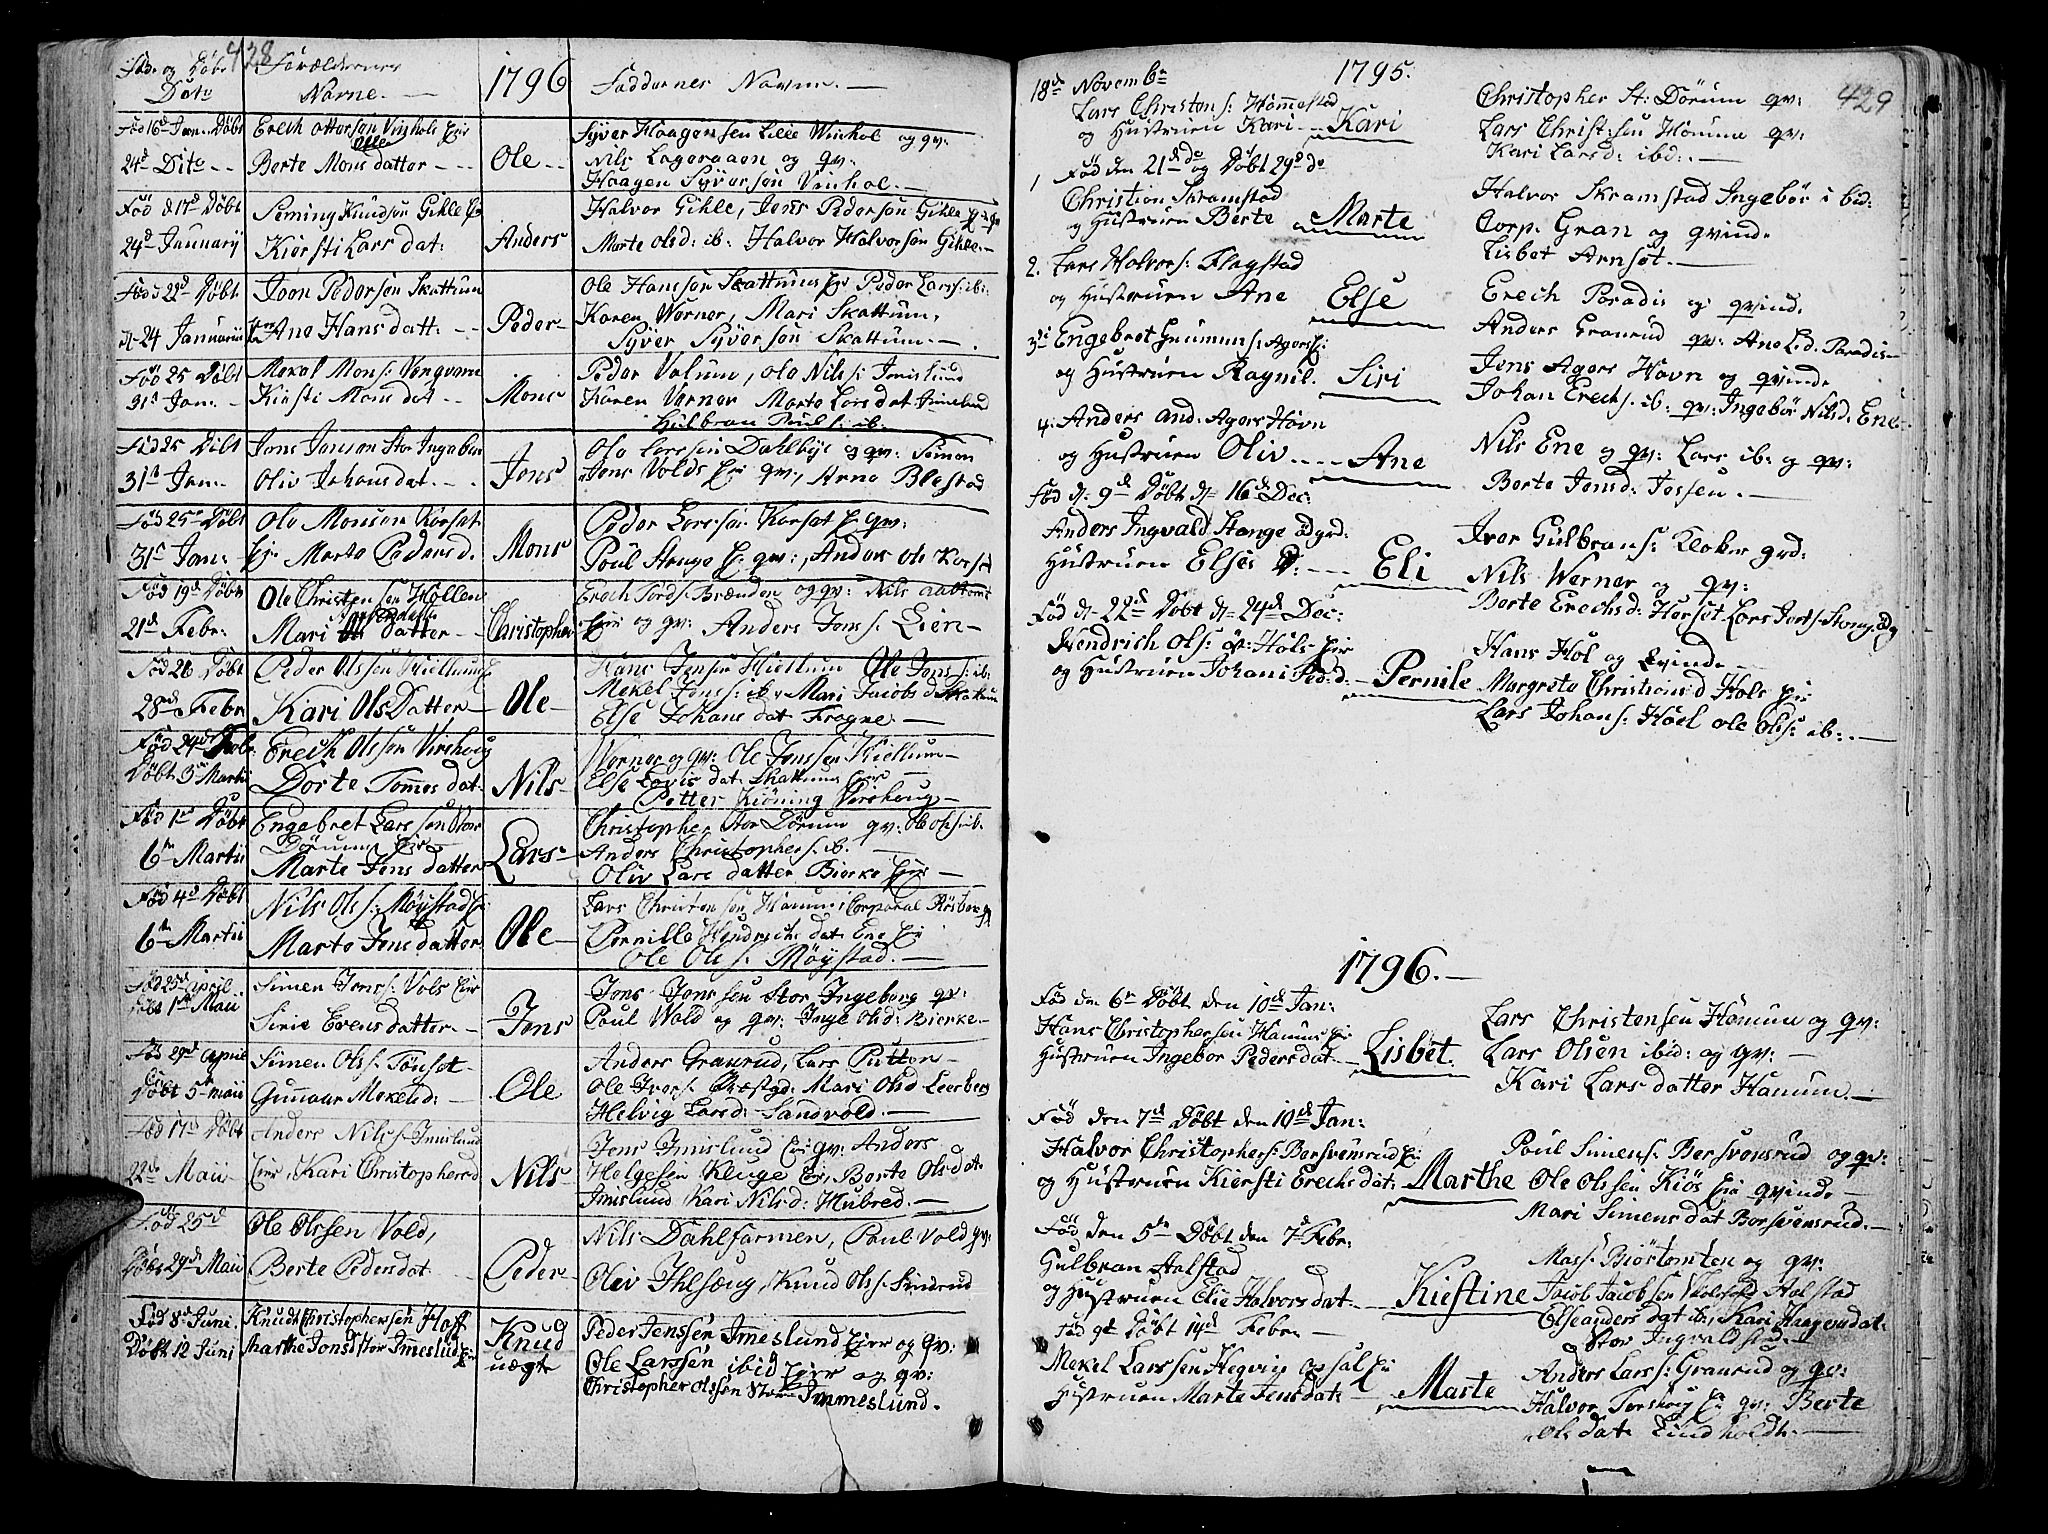 428
Fød og Døbt Dato
Forældernes Navne.
1796
Faddernes Navne.
Fød 16d Jan. Døbt
24d Dito
Erech Ottersen Vinhols Eie
Berte Monsdatter
Ole
Syver Haagensen Lille Vinhol og qv:
Nils Lageraaen og qv:
Haagen Syversøn Vinhol.
Fød d 17d Døbt
24d January
Seming Knudsøn Gihle
Kiersti Larsdat:
Anders
Halvor Gihle, Jens Pedersøn Gihle
Marte Olsd: ib: Halvor Halvorsøn Gihle.
Fød d 22d Døbt
d. 24 Januarii
Joon Pedersøn Skattum
Ane Hansdatt:
Peder
Ole Hanssøn Skattums Eie Peder Larss: ib:
Karen Werner, Mari Skattum,
Syver Syversøn Skattum.
Fød 25 Døbt
31d Jan.
Mekel Mons:
Kirsti Monsdat
Mons
Peder Valum, Ole Nils: Imislund
Karen Verner Marte Larsdat Imislund
Gulbran Poul: ib:
Fød 25 Døbt
31d Jan.
Jens Jensøn Stor Ingeber
Oliv Johansdat.
Jens
Ole Larssøn Dahlbye og qv: Simon
Jens Volds Eie qv:, Arne Blestad
Fød 25d Døbt
31d Jan:
Ole Monsøn Korsat
Marte Pedersd.
Mons
Peder Larssøn Korsat og qv:
Poul Stenge og qv:, Anders Ols Korsat
Fød 19d Døbt
21d Febr:
Ole Christensen Hollen
Mari datter
Christopher
Erech Tords: Brænden og qv: Nils
Eie og qv: Anders Jons: Lien
Fød 26 Døbt
28d Febr
Peder Olssøn Kiellum
Kari OlsDatter
Ole
Hans Jensøn Kiellum Ole Jons: ib:
Mekel Jons: ib: Mari Jacobsd Skatum
Else Johansdat Frogne
Fød 24d Febr.
Døbt 3d Martii
Erech Olssøn Virshoug
Dorte Tomesdat
Nils
Werner og qv: Ole Jenssøn Kiellum
Else Lovisdat: Skattums Eie
Petter Kiøning Virshoug
Fød 1d Døbt
6te Martii
Engebret Larssøn Stor
Dørums Eie
Marte Jensdatter
Lars
Christopher Stor Dørum qv: Ole Ols: ib.
Anders Christophers: ib.
Oliv Larsdatter Bierke Eie
Fød 4d Døbt
6te Martii
Nils Ols: Møystad Eie
Marte Jensdatter
Ole
Lars Christensøn Hamum; Corporal Røsberg
Pernille Hendrichsdat Ene Eie
Ole Ols: Møystad.
Fød 25d April
Døbt 1d Maii
Simen Jens: Vols Eie
Sirie Evensdatter
Jens
Jens Jenssen Stor Ingeborg qv:
Poul Wold og qv: Inge Olsd: Bierke
Fød 29d April
Døbt 5te Maii
Simen Ols: Tønset
Gunnar Mekelsd:
Ole
Anders Granrud, Lars Putten
Ole Ivers: Præstgd: Mari Olsd Leerberg
Helvig Larsd: Sandvold.
Fød 17d Døbt
22d Maii
Anders Nils: Imislund
Eier, Kari Christophersd
Nils
Jens Imislund Eie qv: Anders
Helgesen Kluge Eie, Berte Olsdat
Imislund Kari Nilsd: Hubred.
Fød 25d
Døbt 29d Maii
Ole Olssen Vold,
Berte Pedersdat
Peder
Nils Dahlsarmen, Poul Vold qv:
Oliv Ihlsæng, Knud Ols:
Fød 8d Juni.
Døbt 12 Juni
Knudt Christophersøn Hoff
Marthe Jonsd Stor Immeslund Eie
Knud
uægte
Peder Jenssøn Imeslund Eier og qv:
Ole Larssøn ibid Eier og qv:
Christopher Olssøn Store Immeslund.
429
1795.
18de Novembr
Lars Christens: Hommestad
og Hustruen Kari
Kari
Christopher St: Dørum qv:
Lars Christ:sen Homum qv:
Kari Larsd: ibd:
1
Fød den 21de og Døbt 29d do
Christian Skramstad
og Hustruen Berte
Marte
Halvor Skramstad Ingebør i bid:
Corp. Gran og qvind.
Lisbet Arnsøt.
2. Lars Halvors: Flagstad
og Hustruen Ane
Else
Erech Paradis og qvind.
Anders Granrud qv: Ane Ld. Paradis
3. Engebret Gunmuns: Agers Eie
og Hustruen Ragnil.
Siri
Jens Agers Havn og qvinde
Johan Erechs. ib: qv: Ingebør Nilsd. Ene
4. Anders And: Agers Havn
og Hustruen Oliv
Ane
Nils Ene og qv: Lars ib: og qv:
Berte Jensd: Jessen.
Fød d. 9d Døbt d. 16d Dec:
Anders Ingvald Stange ødgrd.
Hustruen Elses P:
Eli
Iver Gulbrans: Kloker grd:
Nils Werner og qv:
Berte Erechsd: Horset Lars
Fød d. 22d Døbt d. 24d Dec:
Hendrich Ols: øv: Hols Eie
og Hustruen Johani Ped:d.
Pernile
Hans Hol og Qvinde
Margrete Christiansd Hole Eie
Lars Johans: Høel Ole Ols: ib:
1796.
Fød den 6te Døbt den 10d Jan:
Hans Christophersen Hamums Eie
Hustruen Ingebor Pedersdat
Lisbet.
Lars Christensen Homum og qv:
Lars Olsen ibid: og qv:
Kari Larsdatter Hamum.
Fød den 7d Døbt den 10d Jan:
Halvor Christophers: Borsvensrud Eie
og Hustruen Kiersti Erechsdat
Marthe
Poul Simens: Borsvensrud og qv:
Ole Olssen Kiøs Eie qvinde
Mari Simensdat Borsvensrud.
Fød den 5te Døbt den 7d Febr:
Gulbran Aalstad
og Hustruen Elie Halvorsdat.
Kiestine
Mass: Biørtomten og qv:
Jacob Jacobsen Aalstad
Else Andersdat ib: Kari Haagensdat
Stor Ingvaldstad
Fød 9d Døbt 14d Febr.
Mekel Larssen Hegvin
Hustruen Marte Jensdat:
Marte
Anders Lars: Granrud og qv:
Halvor Torshoug Eie qv: Berte
Olsdat Lindholdt.